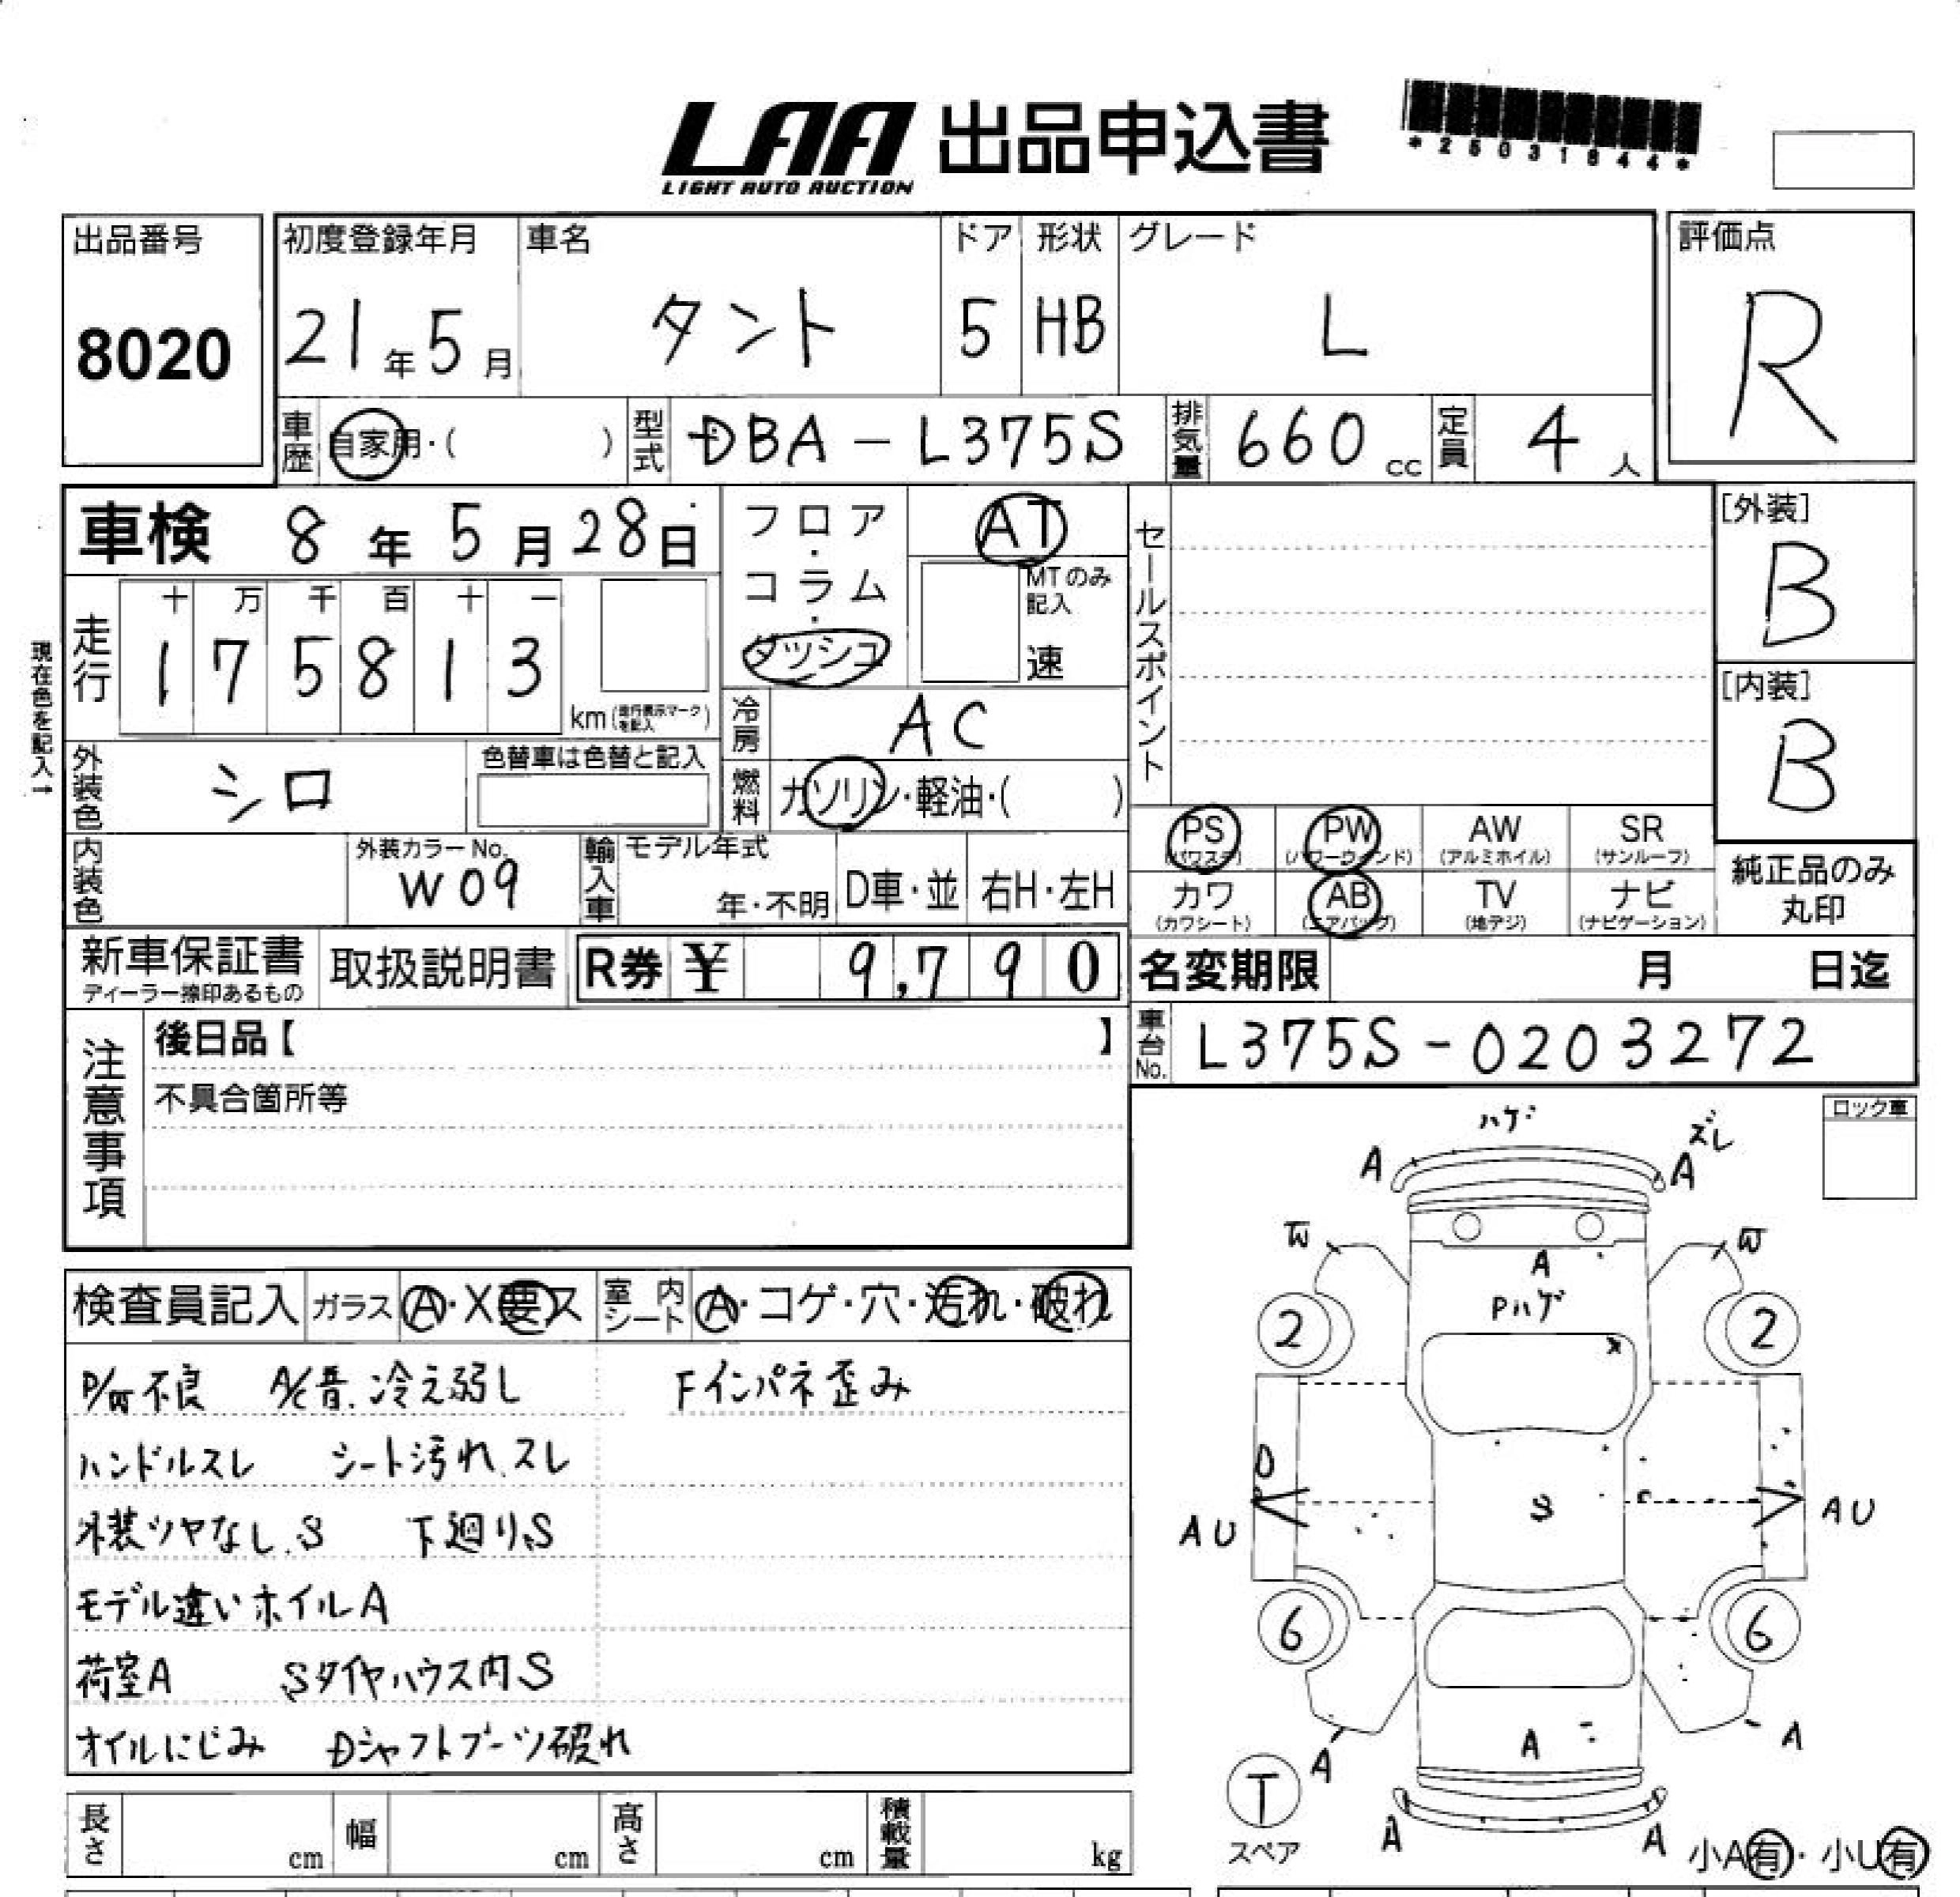 LAA 出品申込書
LIGHT AUTO AUCTION
出品番号
8020
初度登録年月
21年5月
車名
タント
ドア
5
形状
HB
グレード
L
評価点
R
車歴 自家用・( )
型式 DBA-L375S
排気量 660cc
定員 4人
車検 8年5月28日
フロア・コラム・ダッシュ
AT
MTのみ記入
速
セールスポイント
[外装]
B
[内装]
B
現在色を記入→
走行
十 万 千 百 十 一
1 7 5 8 1 3
km(走行表示マークを記入)
冷房 AC
燃料 ガソリン・軽油・( )
外装色 シロ
色替車は色替と記入
内装色
外装カラーNo.
W09
輸入車
モデル年式
年・不明
D車・並
右H・左H
PS (パワステ)
PW (パワーウィンド)
AW (アルミホイル)
SR (サンルーフ)
カワ (カワシート)
AB (エアバッグ)
TV (地デジ)
ナビ (ナビゲーション)
純正品のみ
丸印
新車保証書
ディーラー捺印あるもの
取扱説明書
R券 ¥ 9,790
名変期限 月 日迄
注意事項
後日品【 】
不具合箇所等
車台No. L375S-0203272
ロック車
検査員記入
ガラス A・X要ス
室内シート A・コゲ・穴・汚れ・破れ
不良 A/C音.冷え弱し Fインパネ歪み
ハンドルスレ シート汚れ.スレ
外装ツヤなし.S 下廻りS
モデル違いホイルA
荷室A Sタイヤハウス内S
オイルにじみ Dシャフトブーツ破れ
ハゲ ズレ
A A
W W
A
Pハゲ
2 2
X
D
S
AU AU
6 6
A A
A
T
スペア
A A
小A有・小U有
長さ cm
幅 cm
高さ cm
積載量 kg